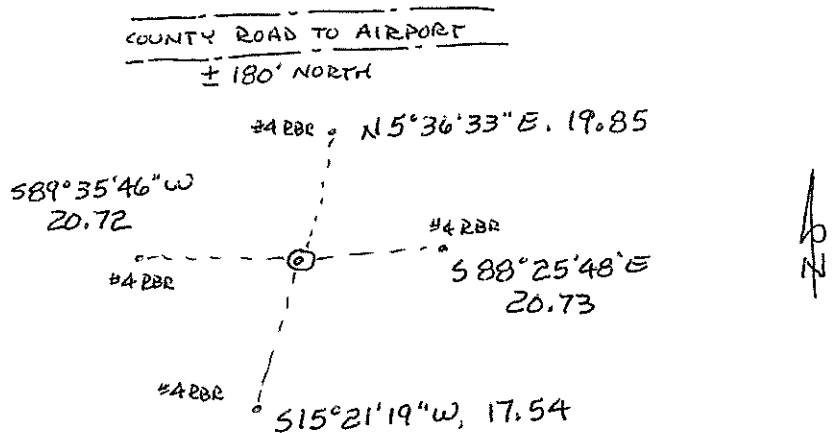 COUNTY ROAD TO AIRPORT
± 180' NORTH
#4 RBR
N 5°36'33"E. 19.85
S89°35'46"W
20.72
#4 RBR
#4 RBR
S 88°25'48'E
20.73
N
#4 RBR
S15°21'19"W, 17.54